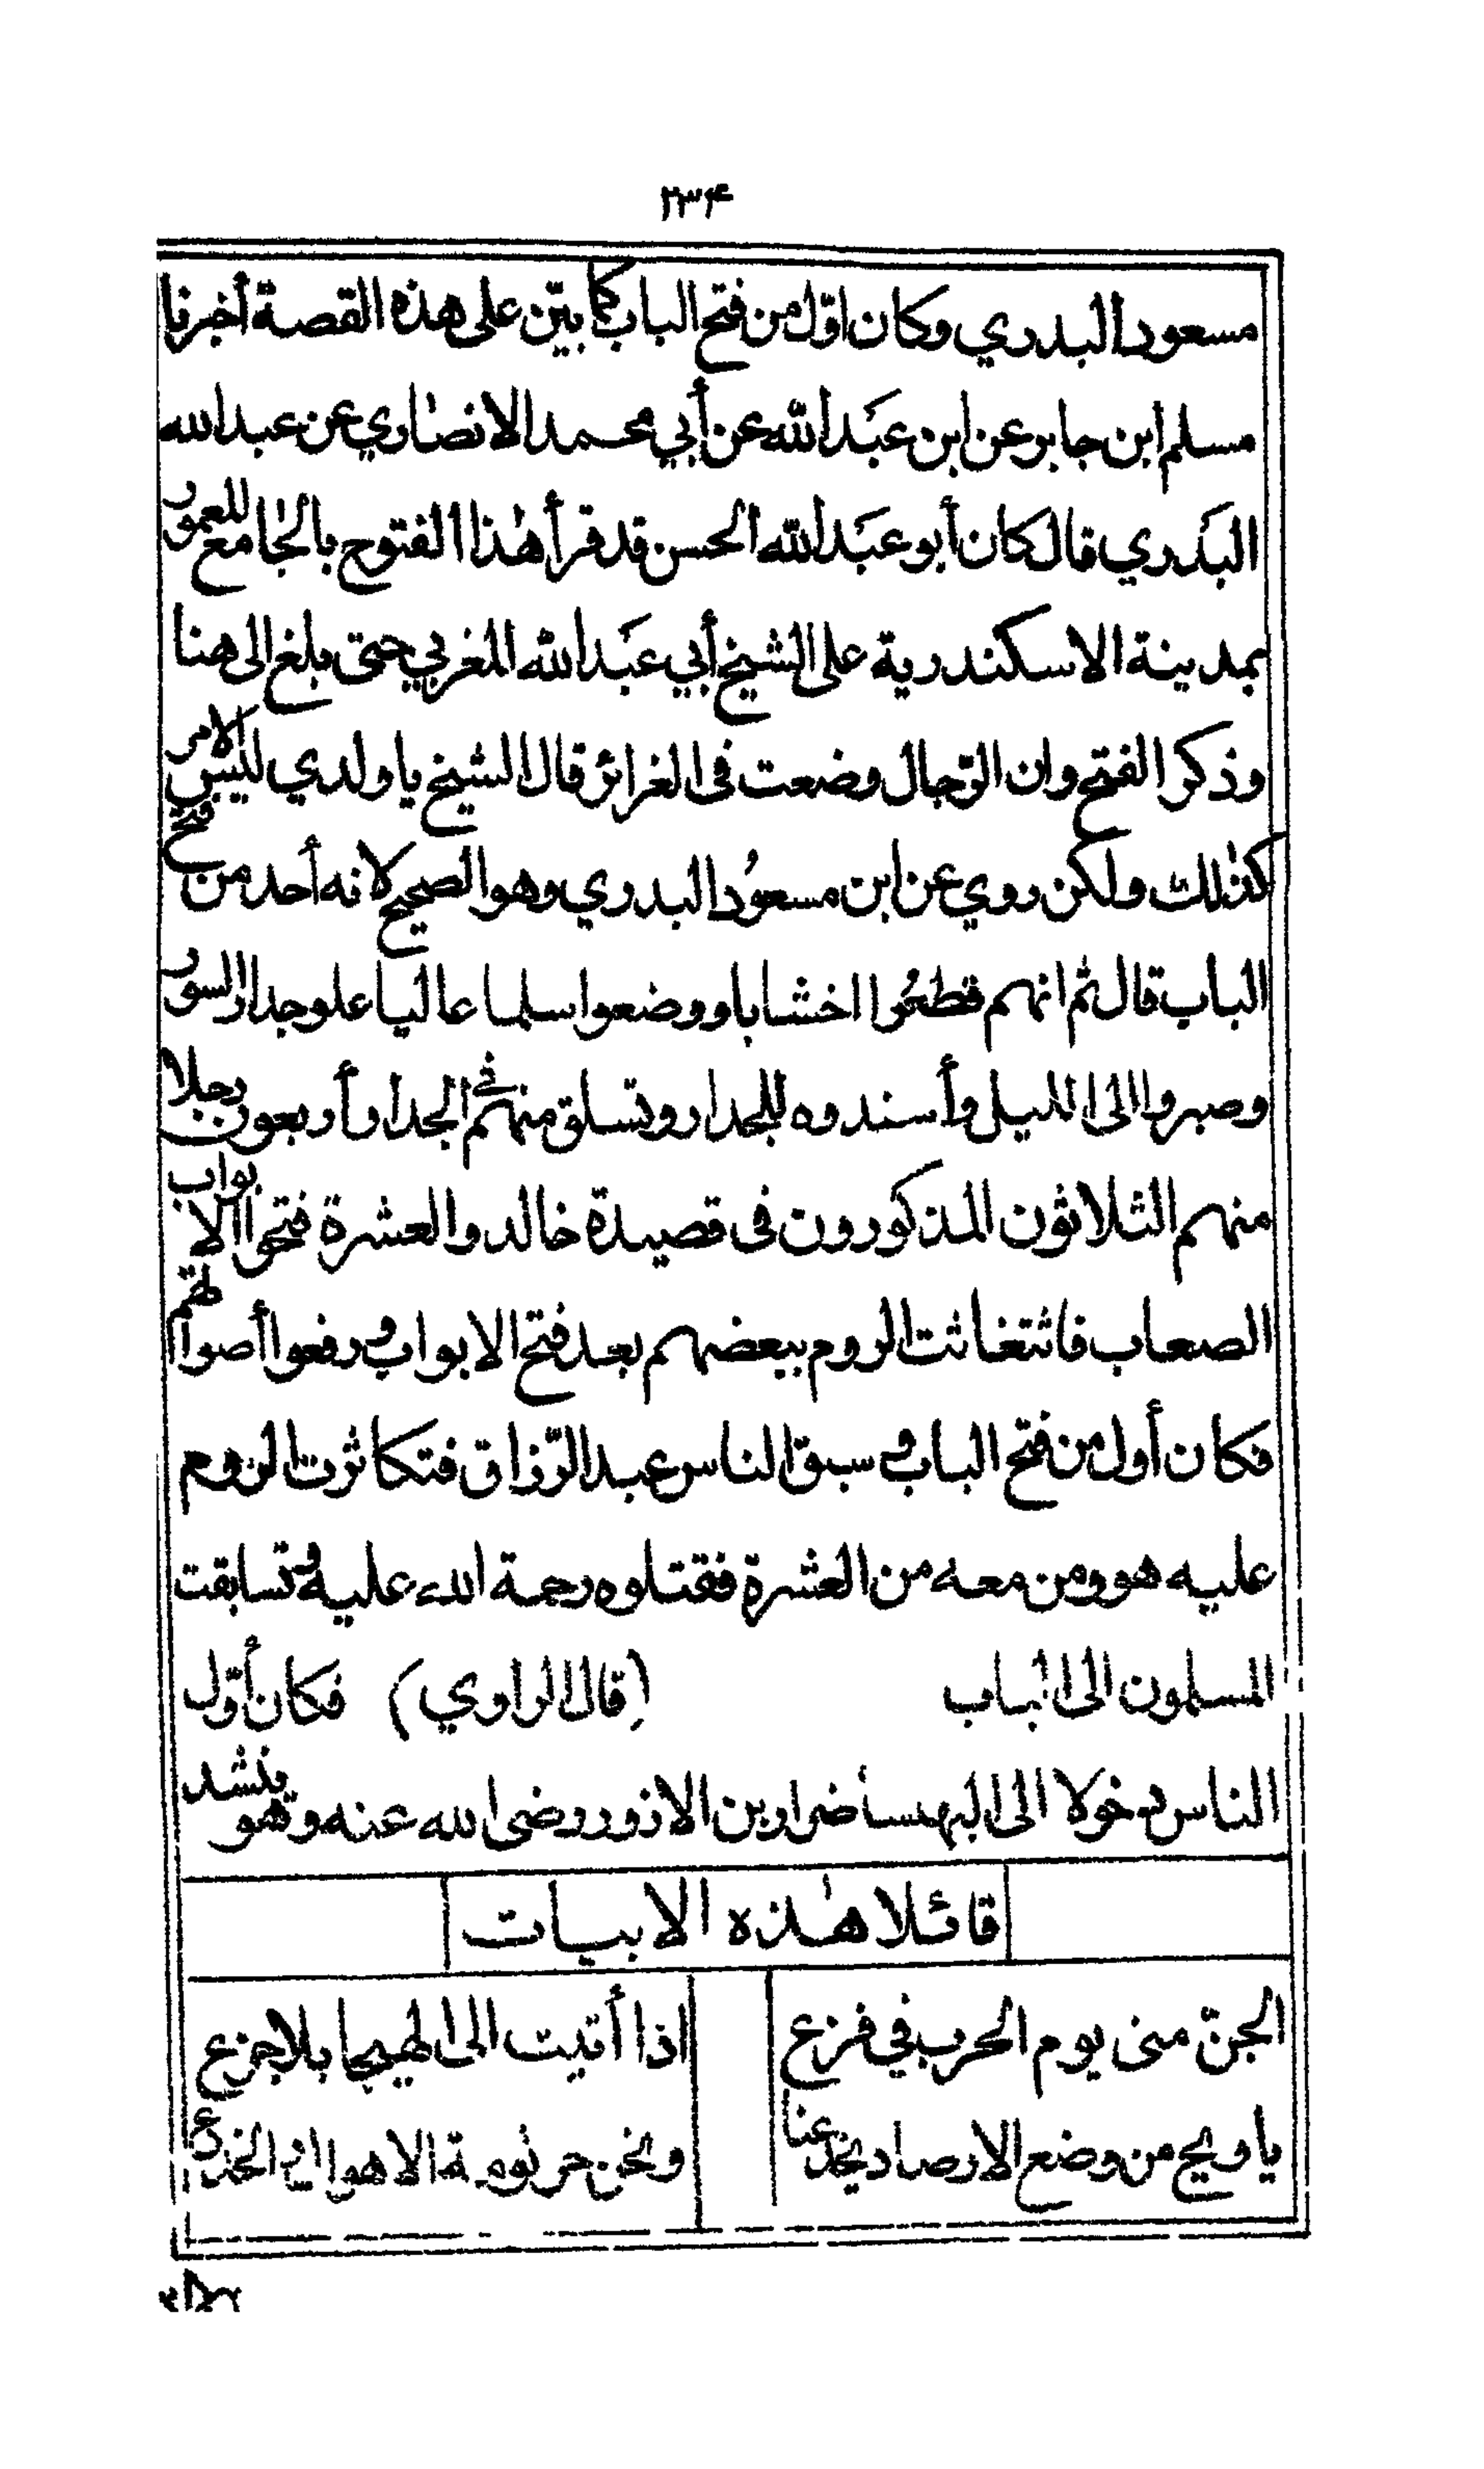 ٢٣٤
مسعود البدري وكان اوّل من فتح الباب كما بيّن على هذه القصة أخبرنا
مسلم ابن جابر عن ابن عبَد الله عن أبي محمد الانصاري عن عبد الله
البَدري قال كان أبو عبَد الله الحسن قد قرأ هٰذا الفتوح بالجٰامع المعمور
بمدينة الاسكندرية على الشيخ أبي عبَد الله المغربي حتى بلغ الى هنا
وذكر الفتح وان الرّجال وضعت فى الغرائر قال الشيخ يا ولدي ليس الامر
كذٰلك ولكن روي عن ابن مسعُود البدري وهو الصحيح لانه أحد من فتح
الباب قال ثم انهم قطعُوا اخشابا ووضعوا سلما عاليا علو جدار السور
وصبروا الى الليل وأسندوه للجدار وتسلق منهم ثَم الجدار أربعون رجلا
منهم الثلاثون المذكورون فى قصيدة خالد والعشرة فتحوا الابواب
الصعاب فاثتغاثت الروم ببعضهم بعد فتح الابواب ورفعوا أصواتهم
فكان أول من فتح الباب وسبق الناس عبد الرّزاق فتكاثرت الروم
عليه هو ومن معه من العشرة فقتلوه رحمة الله عليه وتسابقت
المسلمون الى الباب (قال الراوي) فكان أوّل
الناس دخولا الى البهنسا ضرار بن الازور رضى الله عنه وهو ينشد
قائلا هٰذه الابيات
الجنّ منى يوم الحرب في فزع اذا أتيت الى الهيجا بلا جزع
يا ويح من وضع الارصاد يخدعنا ونحن جرثومة الاهوال الخدع